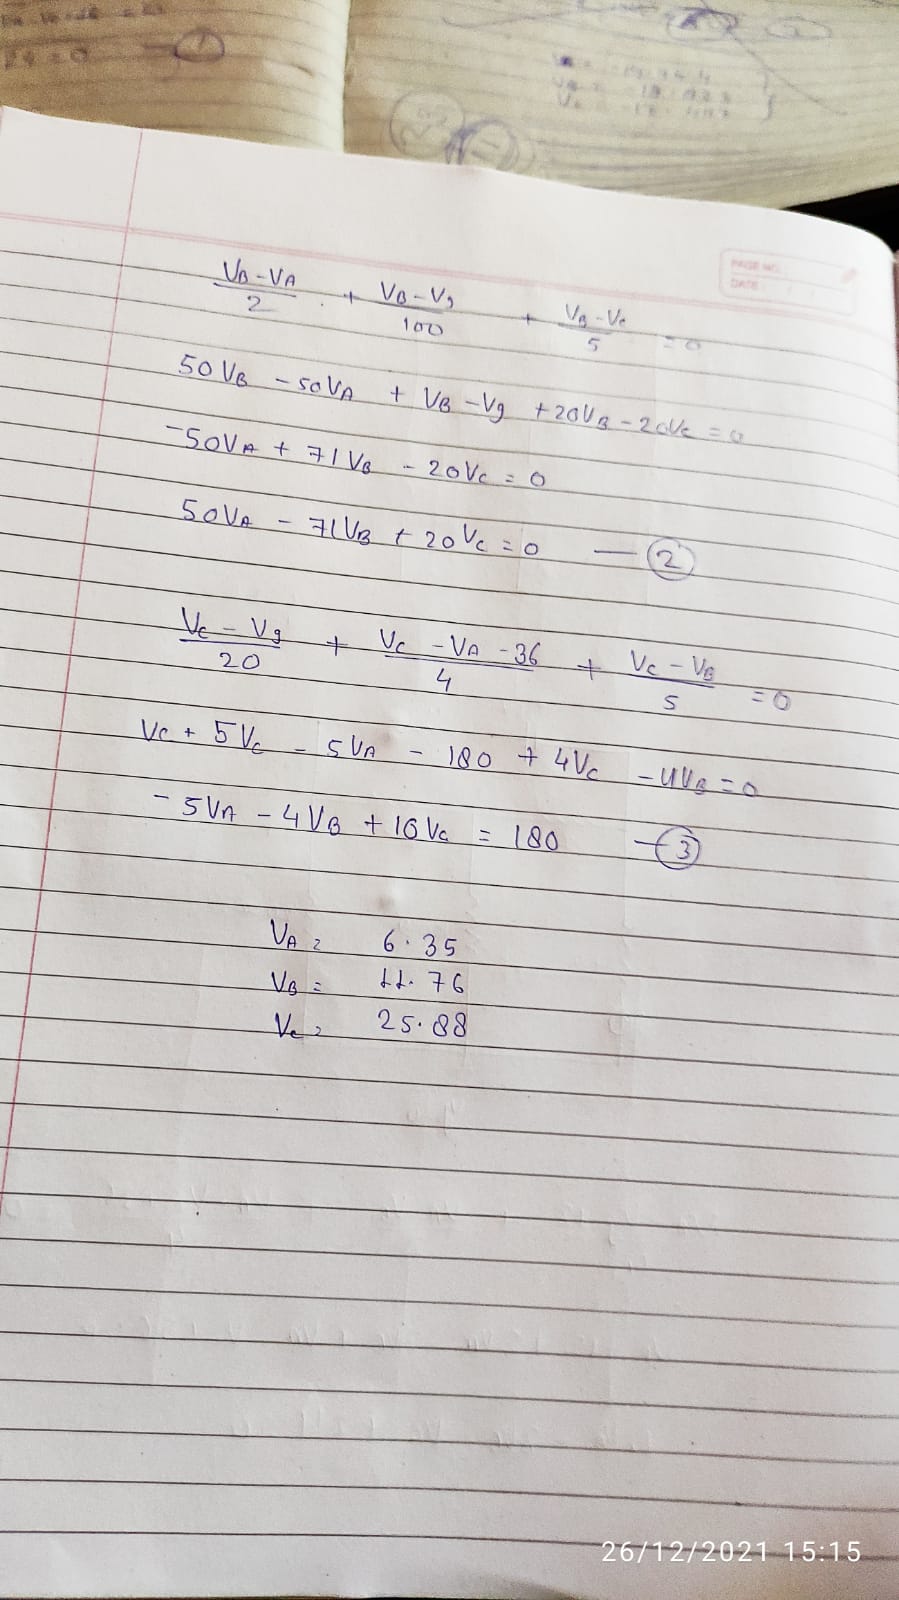 PAGE NO.
DATE
(VB - VA)/2 + (VB - Vg)/100 + (VB - VC)/5 = 0
50VB - 50VA + VB - Vg + 20VB - 20VC = 0
-50VA + 71VB - 20VC = 0
50VA - 71VB + 20VC = 0 — ②
(VC - Vg)/20 + (VC - VA - 36)/4 + (VC - VB)/5 = 0
VC + 5VC - 5VA - 180 + 4VC - 4VB = 0
-5VA - 4VB + 10VC = 180 — ③
VA = 6.35
VB = 11.76
VC = 25.88
26/12/2021 15:15